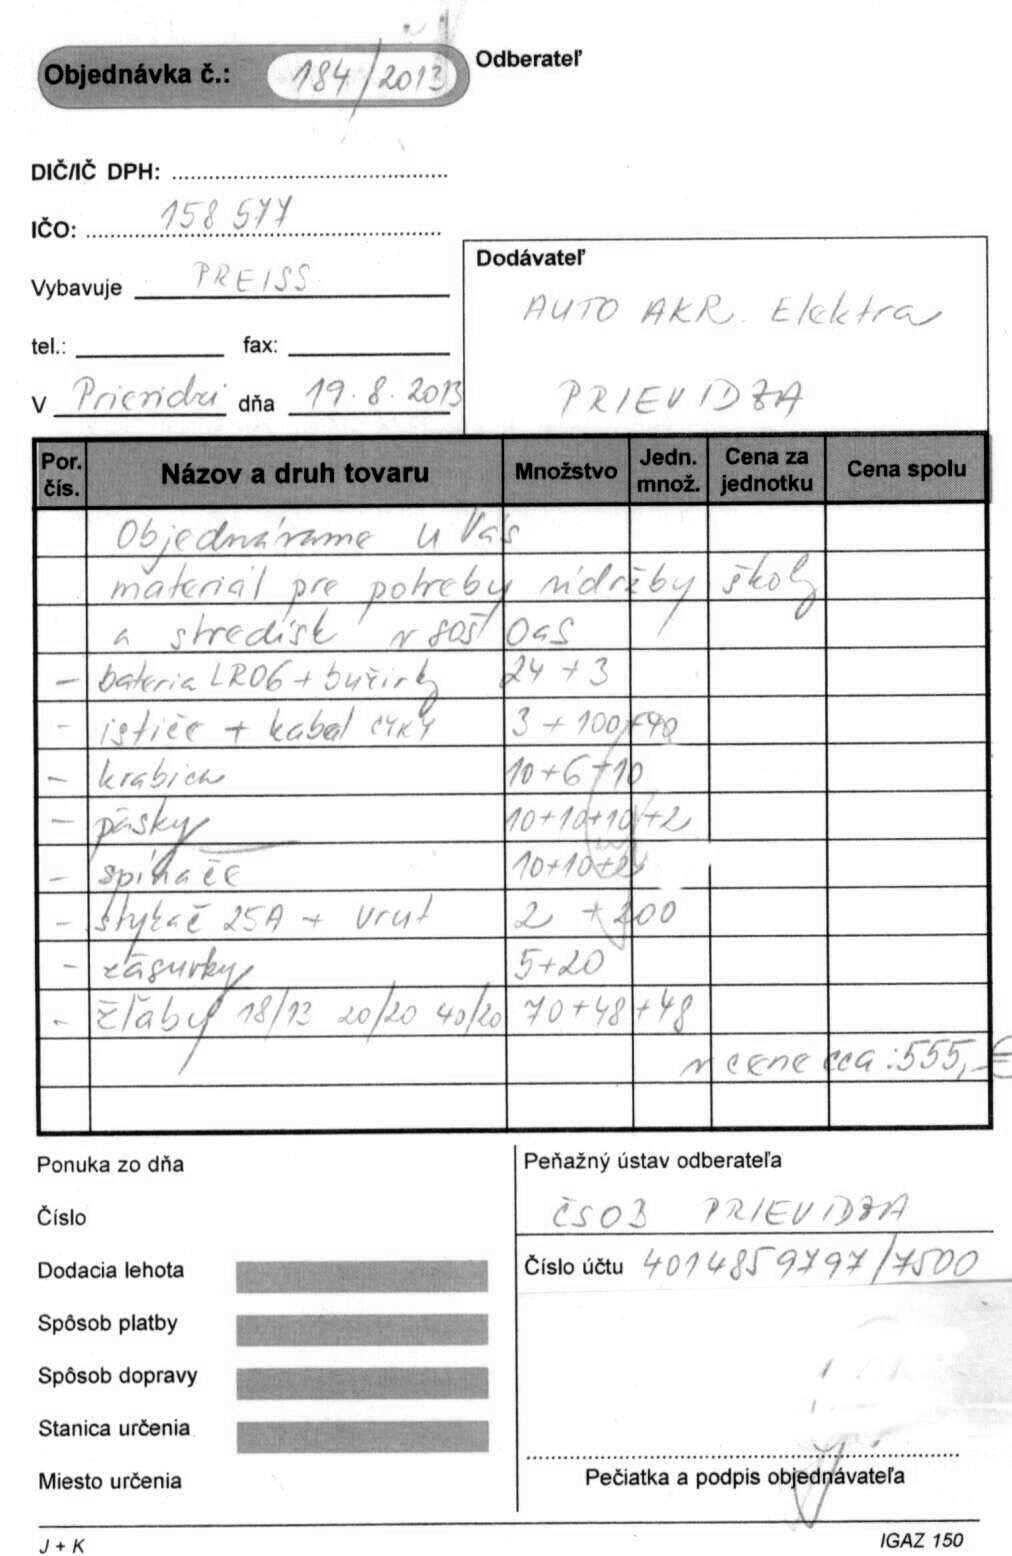 Objednávka č.: 184/2013
Odberateľ
DIČ/IČ DPH:
IČO: 158 577
Vybavuje PREISS
tel.: fax:
V Prievidzi dňa 19.8.2013
Dodávateľ
AUTO AKR. Elektra
PRIEVIDZA
Por. čís. Názov a druh tovaru Množstvo Jedn. množ. Cena za jednotku Cena spolu
Objednávame u Vás
materiál pre potreby údržby školy
a stredísk v SOŠ OaS
- bateria LR06 + bužírky 24 + 3
- ističe + kabel CYKY 3 + 100 + 90
- krabica 10+6+10
- pásky 10+10+10+2
- spínače 10+10+2
- stykač 25A + vrut 2 + 200
- zásuvky 5+20
- žľaby 18/13 20/20 40/20 70+48+48
v cene cca: 555,-€
Ponuka zo dňa
Číslo
Dodacia lehota
Spôsob platby
Spôsob dopravy
Stanica určenia
Miesto určenia
Peňažný ústav odberateľa
ČSOB PRIEVIDZA
Číslo účtu 4014859797/7500
Pečiatka a podpis objednávateľa
J + K
IGAZ 150